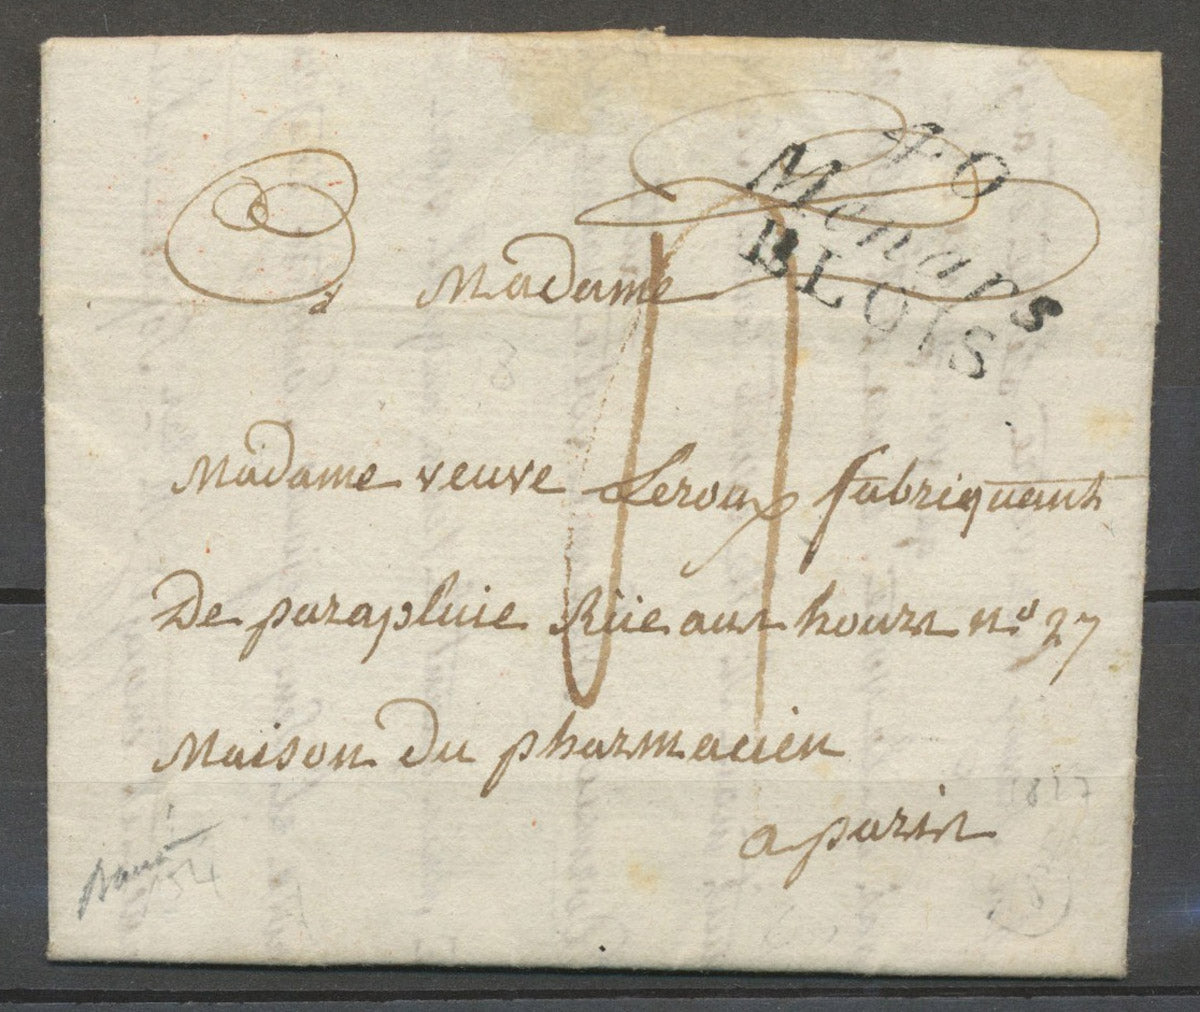 40
Menars
BLOIS
Madame
Madame veuve Leroux fabriquant
De parapluie Rüe aux hours n° 27
Maison Du pharmacien
a paris
1817